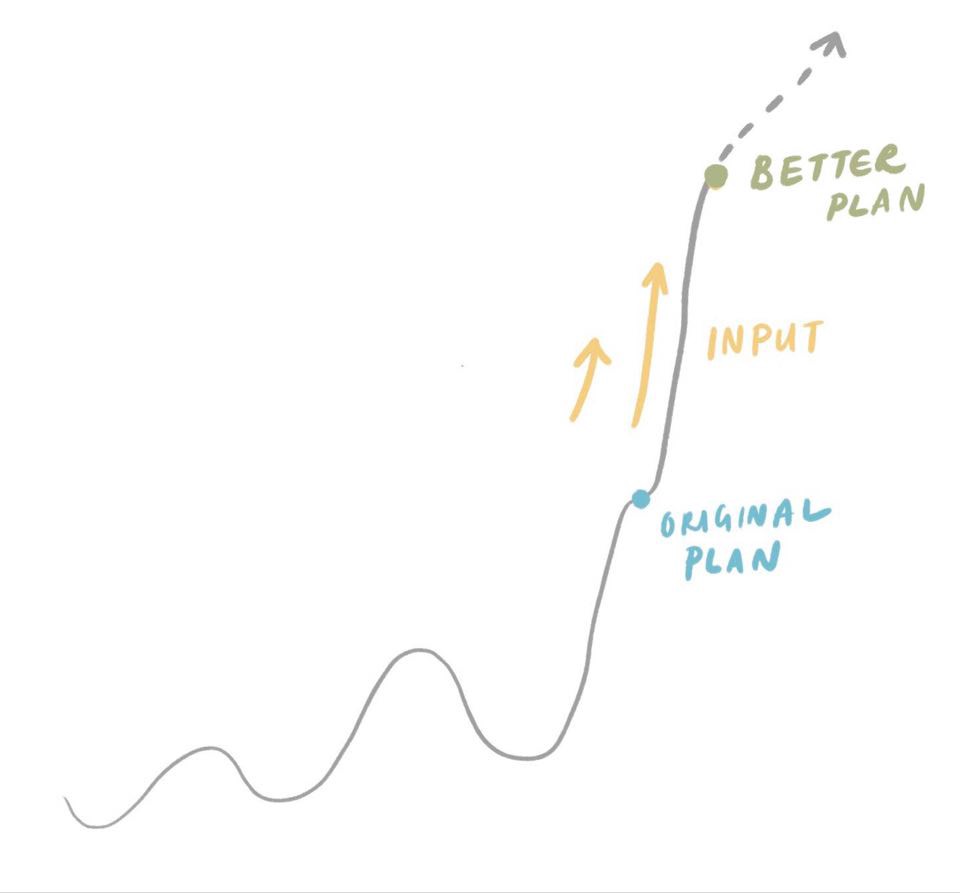 BETTER
PLAN
INPUT
ORIGINAL
PLAN